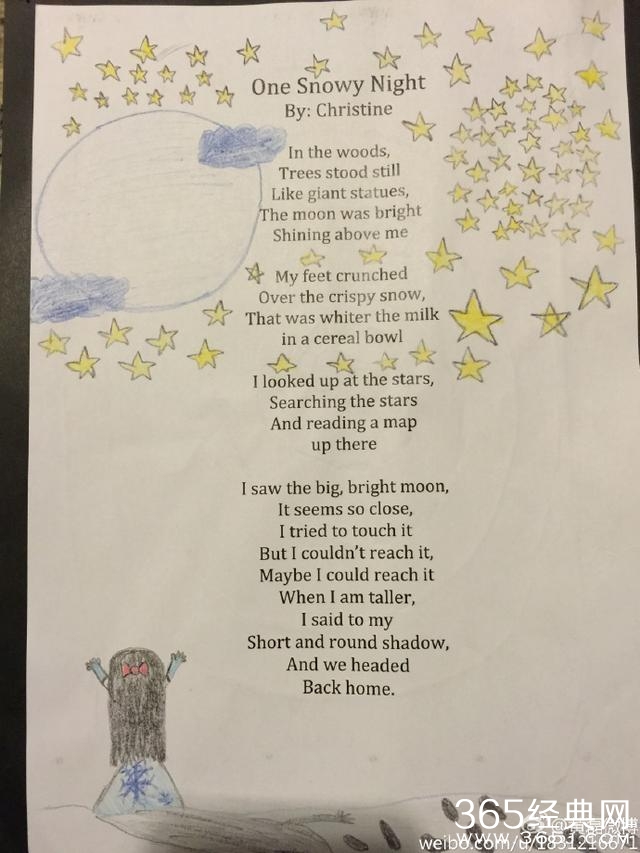 One Snowy Night
By: Christine
In the woods,
Trees stood still
Like giant statues,
The moon was bright
Shining above me
My feet crunched
Over the crispy snow,
That was whiter the milk
in a cereal bowl
I looked up at the stars,
Searching the stars
And reading a map
up there
I saw the big, bright moon,
It seems so close,
I tried to touch it
But I couldn't reach it,
Maybe I could reach it
When I am taller,
I said to my
Short and round shadow,
And we headed
Back home.
365经典网